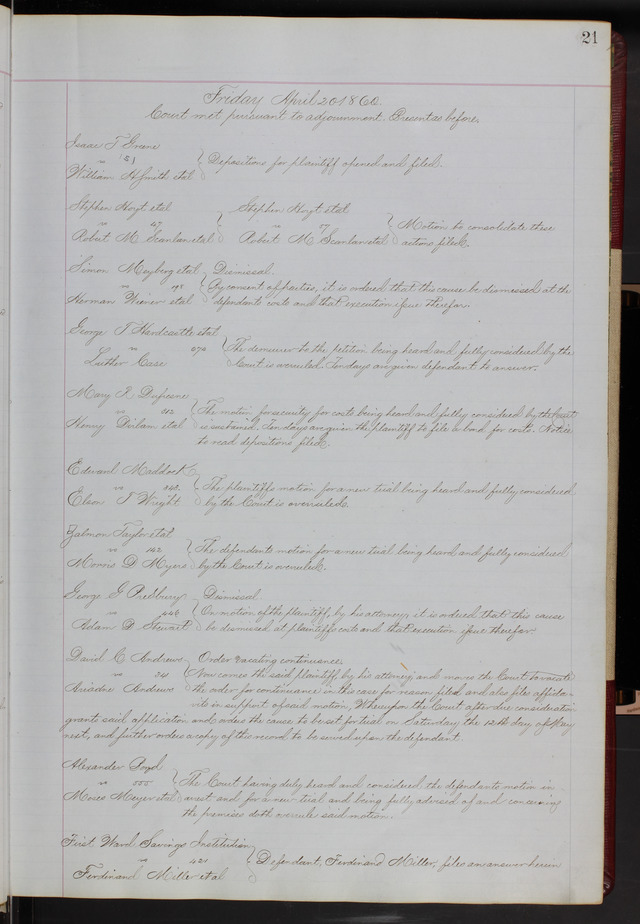 21
Friday April 20 1866.
Court met pursuant to adjournment. Present as before.
Isaac T Greene
vs 151 Depositions for plaintiff opened and filed.
William H Smith etal
Stephen Hoyt etal Stephen Hoyt etal
vs vs Motion to consolidate these
Robert M. Scanlan etal Robert M Scanlan etal actions filed.
Simon Meyberg etal Dismissal.
vs By consent of parties, it is ordered that this cause be dismissed at the
Herman Weiner etal defendants costs and that execution issue therefor.
George T Hardcastle etal
vs The demurrer to the petition being heard and fully considered by the
Luther Case Court is overruled. Ten days are given defendant to answer.
Mary R Dufresne
vs The motion for security for costs being heard and fully considered by the Court
Henry etal is sustained. Ten days are given the plaintiff to file a bond for costs. Notice
to read depositions filed.
Edward Maddock
vs 242 The plaintiffs motion for a new trial being heard and fully considered
Elson T Wright by the Court is overruled.
Zalmon Taylor etal
vs 142 The defendants motion for a new trial being heard and fully considered
Morris D Myers by the Court is overruled.
George G Presbury Dismissal
vs 446 On motion of the plaintiff, by his attorney, it is ordered that this cause
Adam D Stewart be dismissed at plaintiffs costs and that execution issue therefor.
David C Andrews Order vacating continuance.
vs 241 Now comes the said plaintiff by his attorney, and moves the Court to vacate
Ariadne Andrews the order for continuance in this case for reason filed and also files affida-
vits in support of said motion, Whereupon the Court after due consideration
grants said application and orders the cause to be set for trial on Saturday the 12th day of May
next, and further orders a copy of this record to be served upon the defendant.
Alexander Boyd
vs 555 The Court having duly heard and considered the defendants motion in
Moses Meyer etal arrest and for a new trial and being fully advised of and concerning
the premises doth overrule said motion.
First Ward Savings Institution
vs 421 Defendant, Ferdinand Miller, files an answer herein
Ferdinand Miller etal